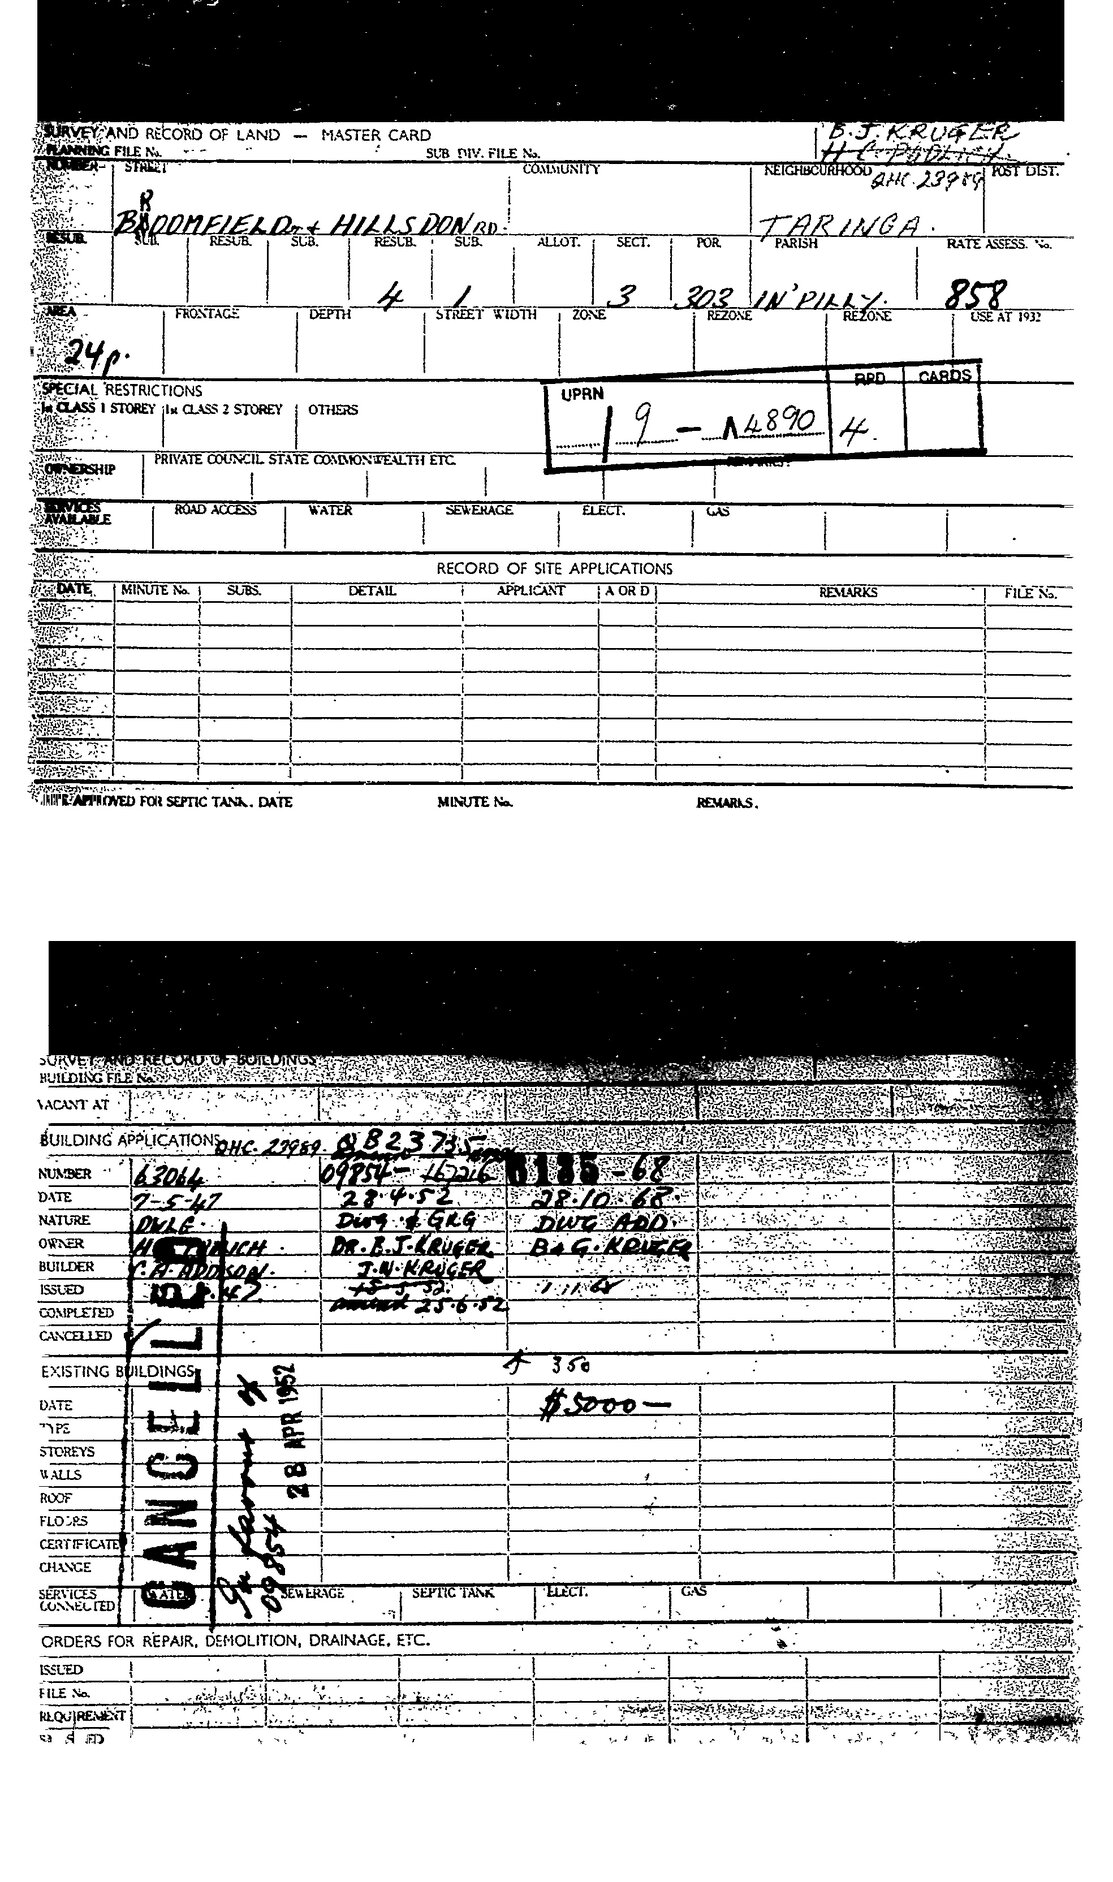 SURVEY AND RECORD OF LAND — MASTER CARD
B. J. KRUGER
PLANNING FILE No.
SUB DIV. FILE No.
NUMBER
STREET
COMMUNITY
NEIGHBOURHOOD
QHC. 23989
POST DIST.
R
BROOMFIELD ST & HILLSDON RD.
TARINGA.
RESUB. SUB. RESUB. SUB. RESUB. SUB. ALLOT. SECT. POR. PARISH RATE ASSESS. No.
4 1 3 303 IN'PILLY. 858
AREA FRONTAGE DEPTH STREET WIDTH ZONE REZONE REZONE USE AT 1932
24p.
SPECIAL RESTRICTIONS
UPRN RPD CARDS
1st CLASS 1 STOREY 1st CLASS 2 STOREY OTHERS
9 — 4890 4
OWNERSHIP PRIVATE COUNCIL STATE COMMONWEALTH ETC. REMARKS:
SERVICES AVAILABLE ROAD ACCESS WATER SEWERAGE ELECT. GAS
RECORD OF SITE APPLICATIONS
DATE MINUTE No. SUBS. DETAIL APPLICANT A OR D REMARKS FILE No.
APPROVED FOR SEPTIC TANK. DATE MINUTE No. REMARKS.
SURVEY AND RECORD OF BUILDINGS
BUILDING FILE No.
VACANT AT
BUILDING APPLICATIONS QHC. 23989 QB23735
NUMBER 63064 09854 — 167216 6135 -68
DATE 7-5-47 28.4.52 28.10.68.
NATURE DWLG. Dwg & GRG DWG ADD.
OWNER DR. B. J. KRUGER B & G. KRUGER
BUILDER C. A. ADDISON. J. W. KRUGER
ISSUED 47 15.5.52. 1.11.68
COMPLETED amend 25.6.52
CANCELLED
CANCELLED
In favour of
09854
28 APR 1952
EXISTING BUILDINGS 350
DATE $5000—
TYPE
STOREYS
WALLS
ROOF
FLOORS
CERTIFICATE
CHANGE
SERVICES CONNECTED WATER SEWERAGE SEPTIC TANK ELECT. GAS
ORDERS FOR REPAIR, DEMOLITION, DRAINAGE, ETC.
ISSUED
FILE No.
REQUIREMENT